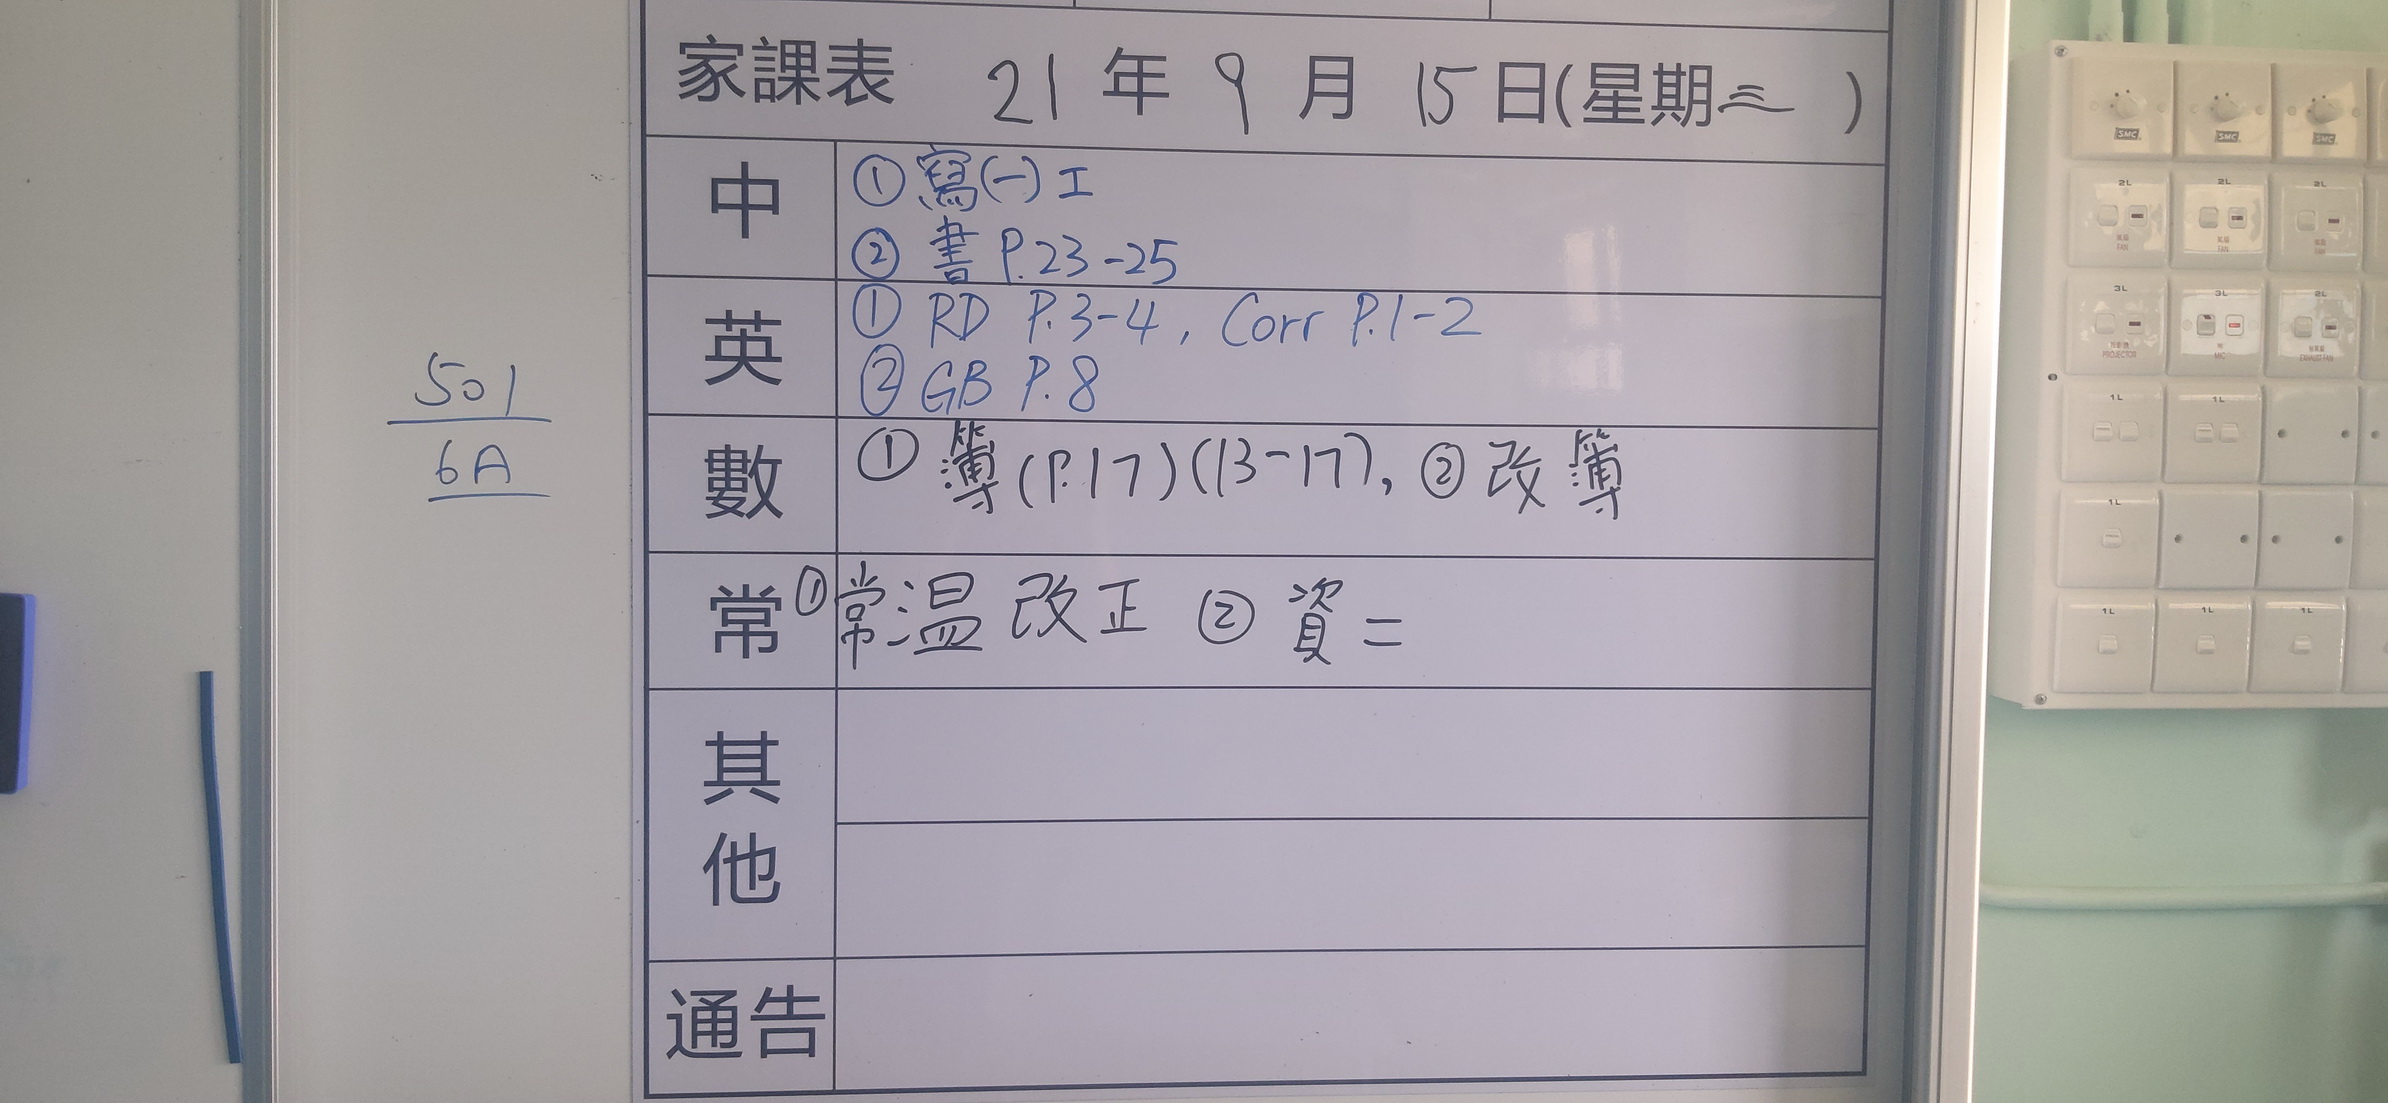 家課表 21 年 9 月 15 日(星期三)
中
①寫(一)工
② 書 P.23-25
英
① RD P.3-4, Corr P.1-2
② GB P.8
數 ① 簿(P.17)(13-17), ② 改簿
常 ①常溫 改正 ② 資二
其他
通告
501
6A
SMC SMC SMC
2L 2L 2L
氣扇 氣扇 氣扇
FAN FAN FAN
3L 3L 2L
PROJECTOR MIC EXHAUST FAN
1L 1L
1L
1L 1L 1L